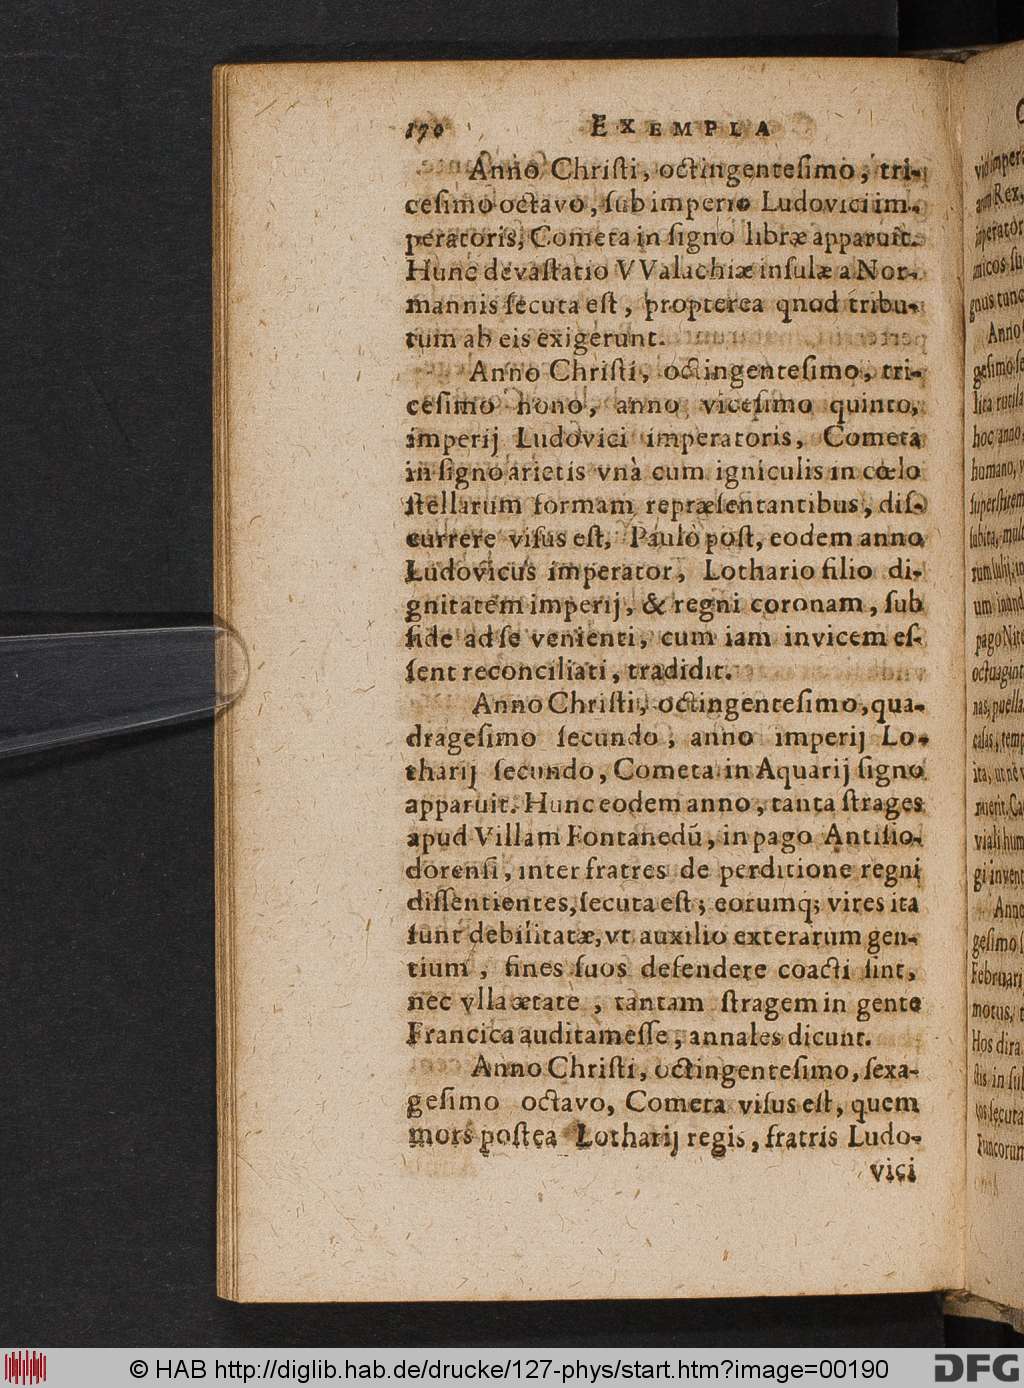 170 EXEMPLA
Anno Chriſti, octingenteſimo, tri-
ceſimo octavo, ſub imperio Ludovici im-
peratoris, Cometa in ſigno libræ apparuit.
Hunc devaſtatio VValachiæ inſulæ a Nor-
mannis ſecuta eſt, propterea qnod tribu-
tum ab eis exigerunt.
Anno Chriſti, octingenteſimo, tri-
ceſimo nono, anno viceſimo quinto,
imperij Ludovici imperatoris, Cometa
in ſigno arietis vnà cum igniculis in cœlo
ſtellarum formam repræſentantibus, diſ-
currere viſus eſt, Paulò poſt, eodem anno
Ludovicus imperator, Lothario filio di-
gnitatem imperij, & regni coronam, ſub
fide ad ſe venienti, cum iam invicem eſ-
ſent reconciliati, tradidit.
Anno Chriſti, octingenteſimo, qua-
drageſimo ſecundo, anno imperij Lo-
tharij ſecundo, Cometa in Aquarij ſigno
apparuit. Hunc eodem anno, tanta ſtrages
apud Villam Fontanedū, in pago Antiſio-
dorenſi, inter fratres de perditione regni
diſſentientes, ſecuta eſt; eorumq; vires ita
ſunt debilitatæ, vt auxilio exterarum gen-
tium, fines ſuos defendere coacti ſint,
nec vlla ætate, tantam ſtragem in gente
Francica auditam eſſe, annales dicunt.
Anno Chriſti, octingenteſimo, ſexa-
geſimo octavo, Cometa viſus eſt, quem
mors poſtea Lotharij regis, fratris Ludo-
vici
Rex,
Anno
hoc anno,
humano, v
pago Nit
Anno
geſimo ſ
Februarij
motus, t
Hos dira
© HAB http://diglib.hab.de/drucke/127-phys/start.htm?image=00190
DFG